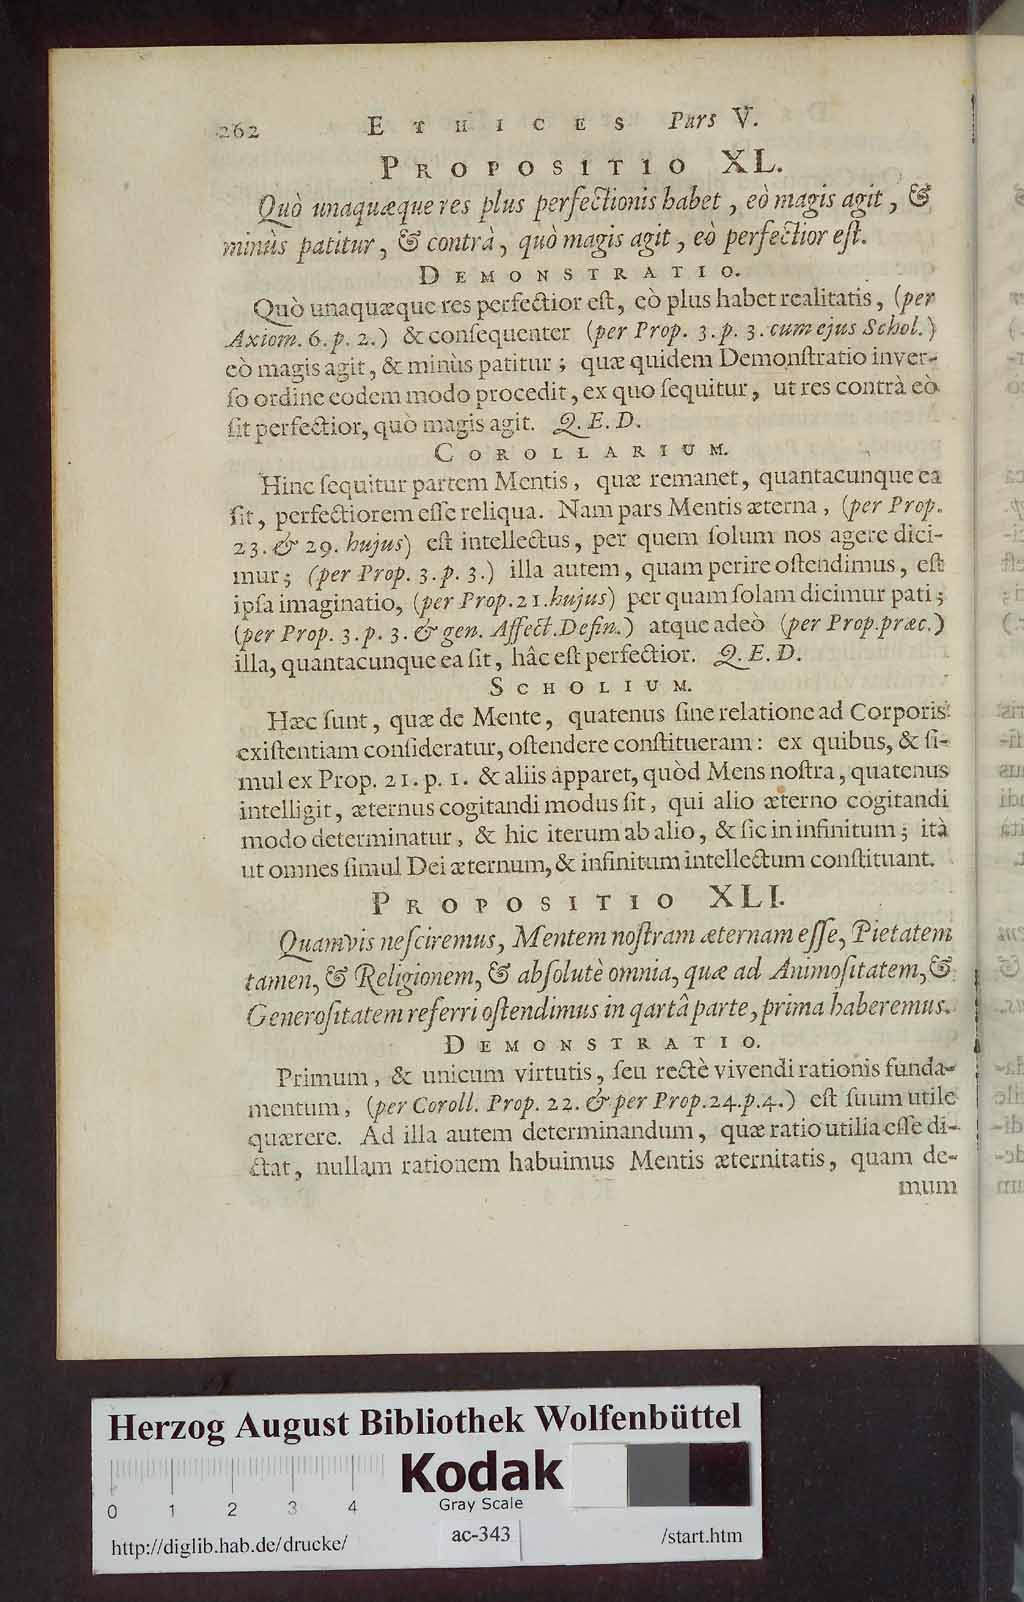 262 ETHICES Pars V.
PROPOSITIO XL.
Quò unaquæque res plus perfectionis habet, eò magis agit, &
minùs patitur, & contrà, quò magis agit, eò perfectior eſt.
DEMONSTRATIO.
Quò unaquæque res perfectior eſt, eò plus habet realitatis, (per
Axiom. 6. p. 2.) & conſequenter (per Prop. 3. p. 3. cum ejus Schol.)
eò magis agit, & minùs patitur; quæ quidem Demonſtratio inver-
ſo ordine eodem modo procedit, ex quo ſequitur, ut res contrà eò
ſit perfectior, quò magis agit. Q. E. D.
COROLLARIUM.
Hinc ſequitur partem Mentis, quæ remanet, quantacunque ea
ſit, perfectiorem eſſe reliqua. Nam pars Mentis æterna, (per Prop.
23. & 29. hujus) eſt intellectus, per quem ſolum nos agere dici-
mur; (per Prop. 3. p. 3.) illa autem, quam perire oſtendimus, eſt
ipſa imaginatio, (per Prop. 21. hujus) per quam ſolam dicimur pati;
(per Prop. 3. p. 3. & gen. Affect. Defin.) atque adeò (per Prop. præc.)
illa, quantacunque ea ſit, hâc eſt perfectior. Q. E. D.
SCHOLIUM.
Hæc ſunt, quæ de Mente, quatenus ſine relatione ad Corporis
exiſtentiam conſideratur, oſtendere conſtitueram: ex quibus, & ſi-
mul ex Prop. 21. p. 1. & aliis apparet, quòd Mens noſtra, quatenus
intelligit, æternus cogitandi modus ſit, qui alio æterno cogitandi
modo determinatur, & hic iterum ab alio, & ſic in infinitum; ità
ut omnes ſimul Dei æternum, & infinitum intellectum conſtituant.
PROPOSITIO XLI.
Quamvis neſciremus, Mentem noſtram æternam eſſe, Pietatem
tamen, & Religionem, & abſolutè omnia, quæ ad Animoſitatem, &
Generoſitatem referri oſtendimus in qartâ parte, prima haberemus.
DEMONSTRATIO.
Primum, & unicum virtutis, ſeu rectè vivendi rationis funda-
mentum, (per Coroll. Prop. 22. & per Prop. 24. p. 4.) eſt ſuum utile
quærere. Ad illa autem determinandum, quæ ratio utilia eſſe di-
ctat, nullam rationem habuimus Mentis æternitatis, quam de-
mum
Herzog August Bibliothek Wolfenbüttel
Kodak
Gray Scale
0 1 2 3 4
http://diglib.hab.de/drucke/ ac-343 /start.htm